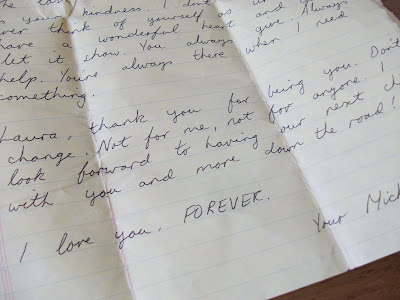 s your kindness. I don't
ever think of yourself as
have a wonderful heart and
let it show. You always give. Always
help. You're always there when I need
something.
Laura, thank you for being you. Don't
change. Not for me, not for anyone. I
look forward to having our next
with you and more down the road!
I love you. FOREVER.
Your Mich